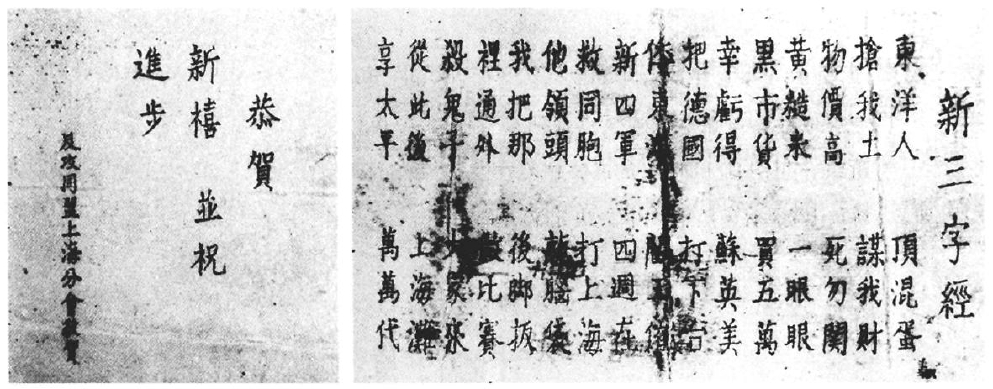 新三字經
東洋人 頂混蛋
搶我土 謀我財
物價高 死勿關
黃糙米 一眼眼
黑市貨 買五萬
幸虧得 蘇英美
把德國 打下台
東
新四軍 四週在
救同胞 打上海
他領頭 腦袋
我把那 後脚扳
裡通外 比賽
殺鬼子 大家來
從此後 上海灘
享太平 萬萬代
恭賀
新禧 並祝
進步
反攻同盟上海分會敬賀